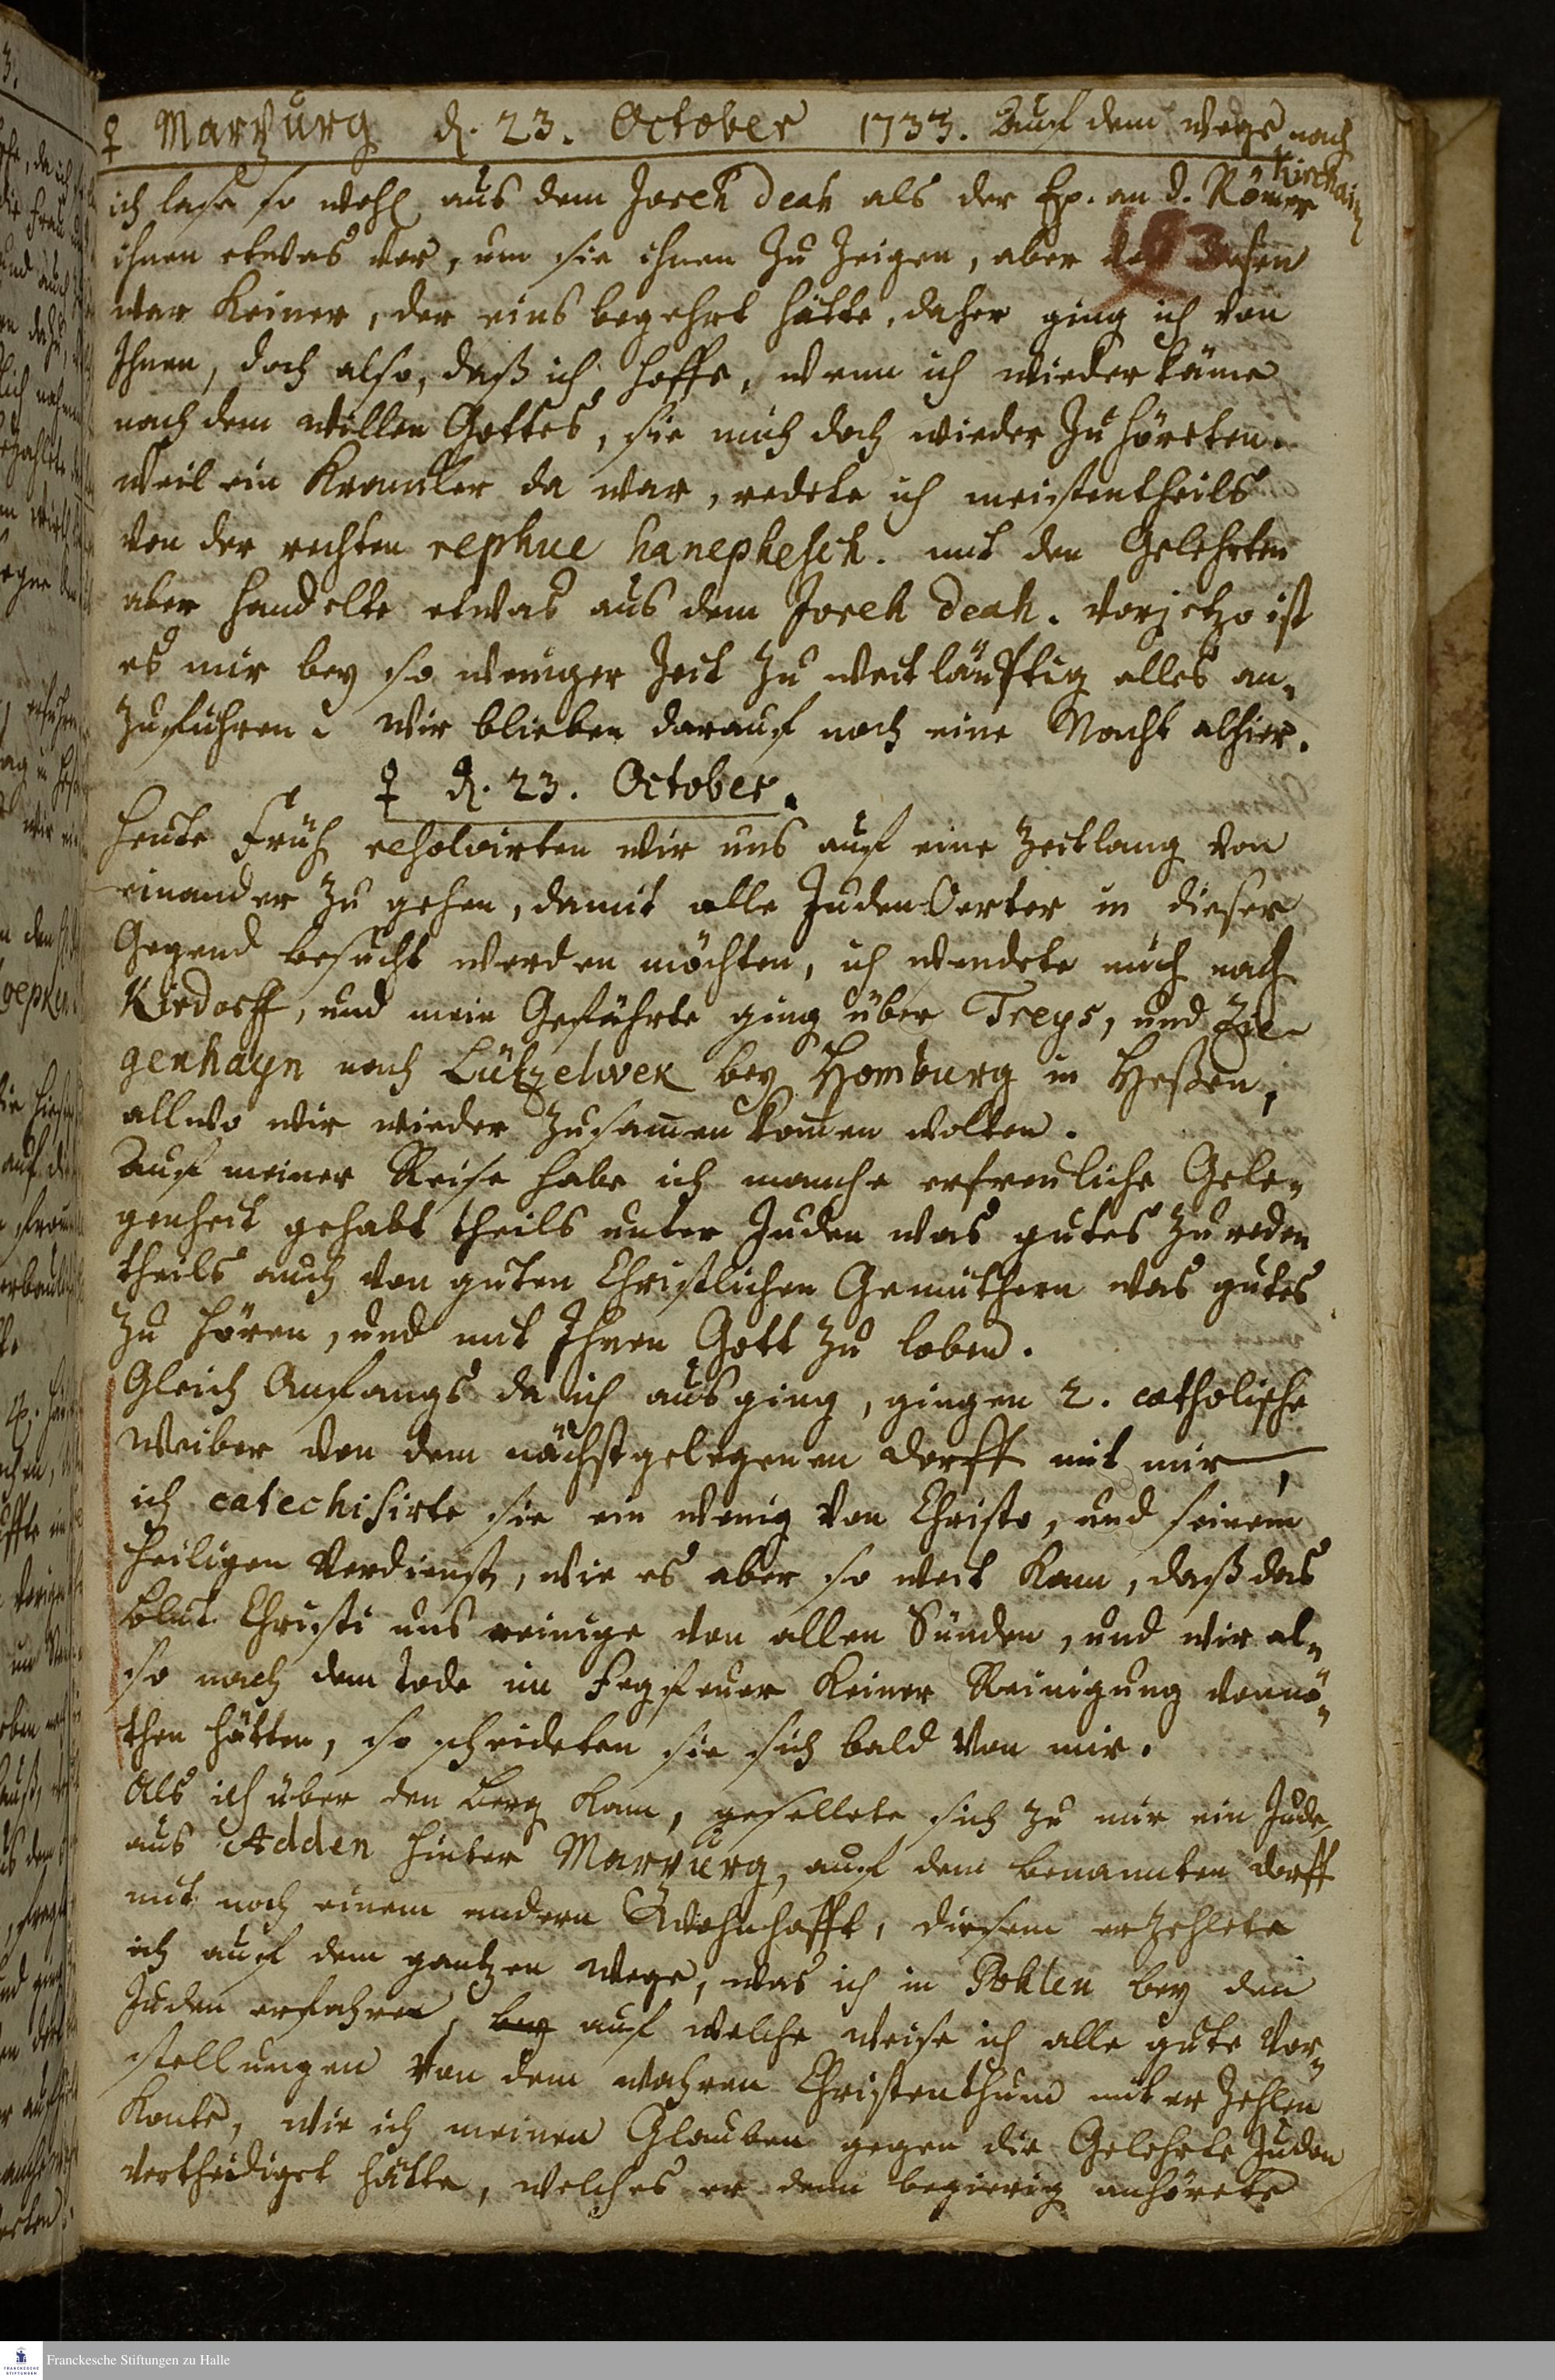 ♀ Marburg d. 23. October 1733. Auf dem wege nach
Kirchain
ich lase so wohl aus dem Joreh deah als der Ep. an d. Römer
193
ihnen etwas vor, um sie ihnen zu zeigen, aber
war keiner, der eins begehrt hätte, daher ging ich von
Ihnen, doch also, daß ich hoffe, wenn ich wieder käme
nach dem willen Gottes, sie mich doch wieder zu höreten.
Weil ein Krancker da war, redete ich meistentheils
von der rechten rephue hanephesch. mit den Gelehrten
aber handelte etwas aus dem Joreh deah. vorjetzo ist
es mir bey so weniger Zeit zu weitläufftig alles an-
zuführen. Wir blieben darauf noch eine Nacht alhier.
♀ d. 23. October.
Heute Früh resolvirten wir uns auf eine Zeitlang von
einander zu gehen, damit alle Juden Oerter in dieser
Gegend besucht werden möchten, ich wendete mich nach
Kirdorff, und mein Gefährte ging über Treys, und Zie-
genhayn nach Lützelwek bey Homburg in Heßen,
allwo wir wieder zusam̄en kom̄en wolten.
Auf meiner Reise habe ich manche erfreuliche Gele-
genheit gehabt theils unter Juden was gutes zu reden
theils auch von guten Christlichen Gemüthern was gutes
zu hören, und mit Ihnen Gott zu loben.
Gleich Anfangs da ich ausging, gingen 2. catholische
Weiber von dem nächstgelegenen dorff mit mir,
ich catechisirte sie ein wenig von Christo, und seinem
heiligen Verdienst, wie es aber so weit kam, daß das
Blut Christi uns reinige von allen Sünden, und wir al-
so nach dem Tode im Fegfeuer keiner Reinigung vonnö-
then hätten, so scheideten sie sich bald von mir.
Als ich über den Berg kam, gesellete sich zu mir ein Jude,
aus Adden hinter Marburg, auf dem benannten dorff
mit noch einem andern Wohnhafft, diesem erzehlete
ich auf dem gantzen wege, was ich in Pohlen bey den
Juden erfahren, bey auf welche weise ich alle gute Vor-
stellungen von dem wahren Christenthum mit erzehlen
konte, wie ich meinen Glauben gegen die Gelehrte Juden
vertheidiget hätte, welches er denn begierig anhörete
Franckesche Stiftungen zu Halle